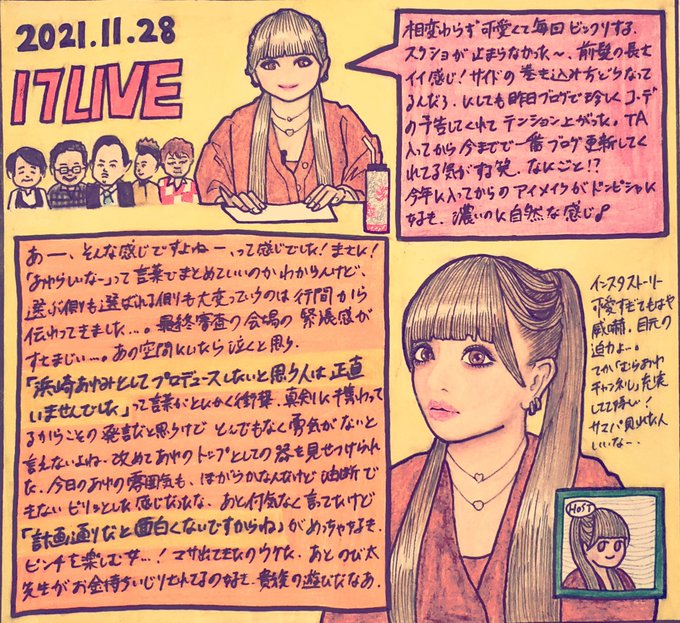 2021.11.28
17LIVE
相変わらず可愛くて毎回ビックリする。
スクショが止まらなかった〜、前髪の長さ
イイ感じ!サイドの巻き込み方どうなって
るんだろ、にしても昨日ブログで珍しくコーデ
の予告してくれてテンション上がった。TA
入ってから今までで一番ブログ更新してく
れてる気がする笑。なにごと!?
今年に入ってからのアイメイクがドンピシャに
好き、濃いのに自然な感じ
あー、そんな感じですよねー、って感じでした!まさに!
「あゆらしいなー」って言葉でまとめていいのかわからんけど、
選ぶ側も選ばれる側も大変っていうのは行間から
伝わってきました…。最終審査の会場の緊張感が
すさまじい…。あの空間にいたら泣くと思う。
「浜崎あゆみとしてプロデュースしたいと思う人は正直
いませんでした」って言葉がとにかく衝撃、真剣に携わって
るからこその発言だと思うけどとんでもなく勇気がないと
言えないよね。改めてあゆのトップとしての器を見せつけられ
た、今日のあゆの雰囲気も、ほがらかなんだけど油断で
きないピリッとした感じだったな。あと何気なく言ってたけど
「計画通りだと面白くないですからね」がめっちゃ好き。
ピンチを楽しむ女…!マサ出てきたのウケた。あとのび太
先生がお金持ちいじりされてるの好き。貴族の遊びだなあ。
インスタストーリー
可愛すぎてもはや
威嚇。目元の
迫力よ…。
てか「むらあゆ
チャンネル」充実
してて嬉しい!
サマパ見れた人
いいなー。
HOST